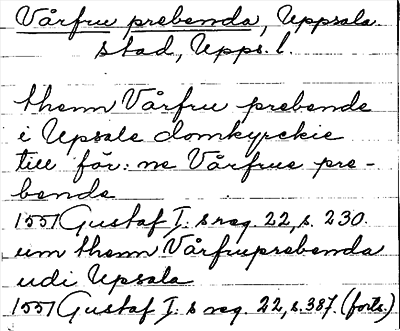 Vårfru prebenda, Uppsala
stad, Upps. l.
thenn Vårfru prebende
i Upsale domkyrckie
till för: ne Vårfrue pre-
bende
1551 Gustaf I:s reg. 22, s. 230.
um thenn Vårfruprebenda
udi Upsala
1551 Gustaf I:s reg. 22, s. 387. (forts.)